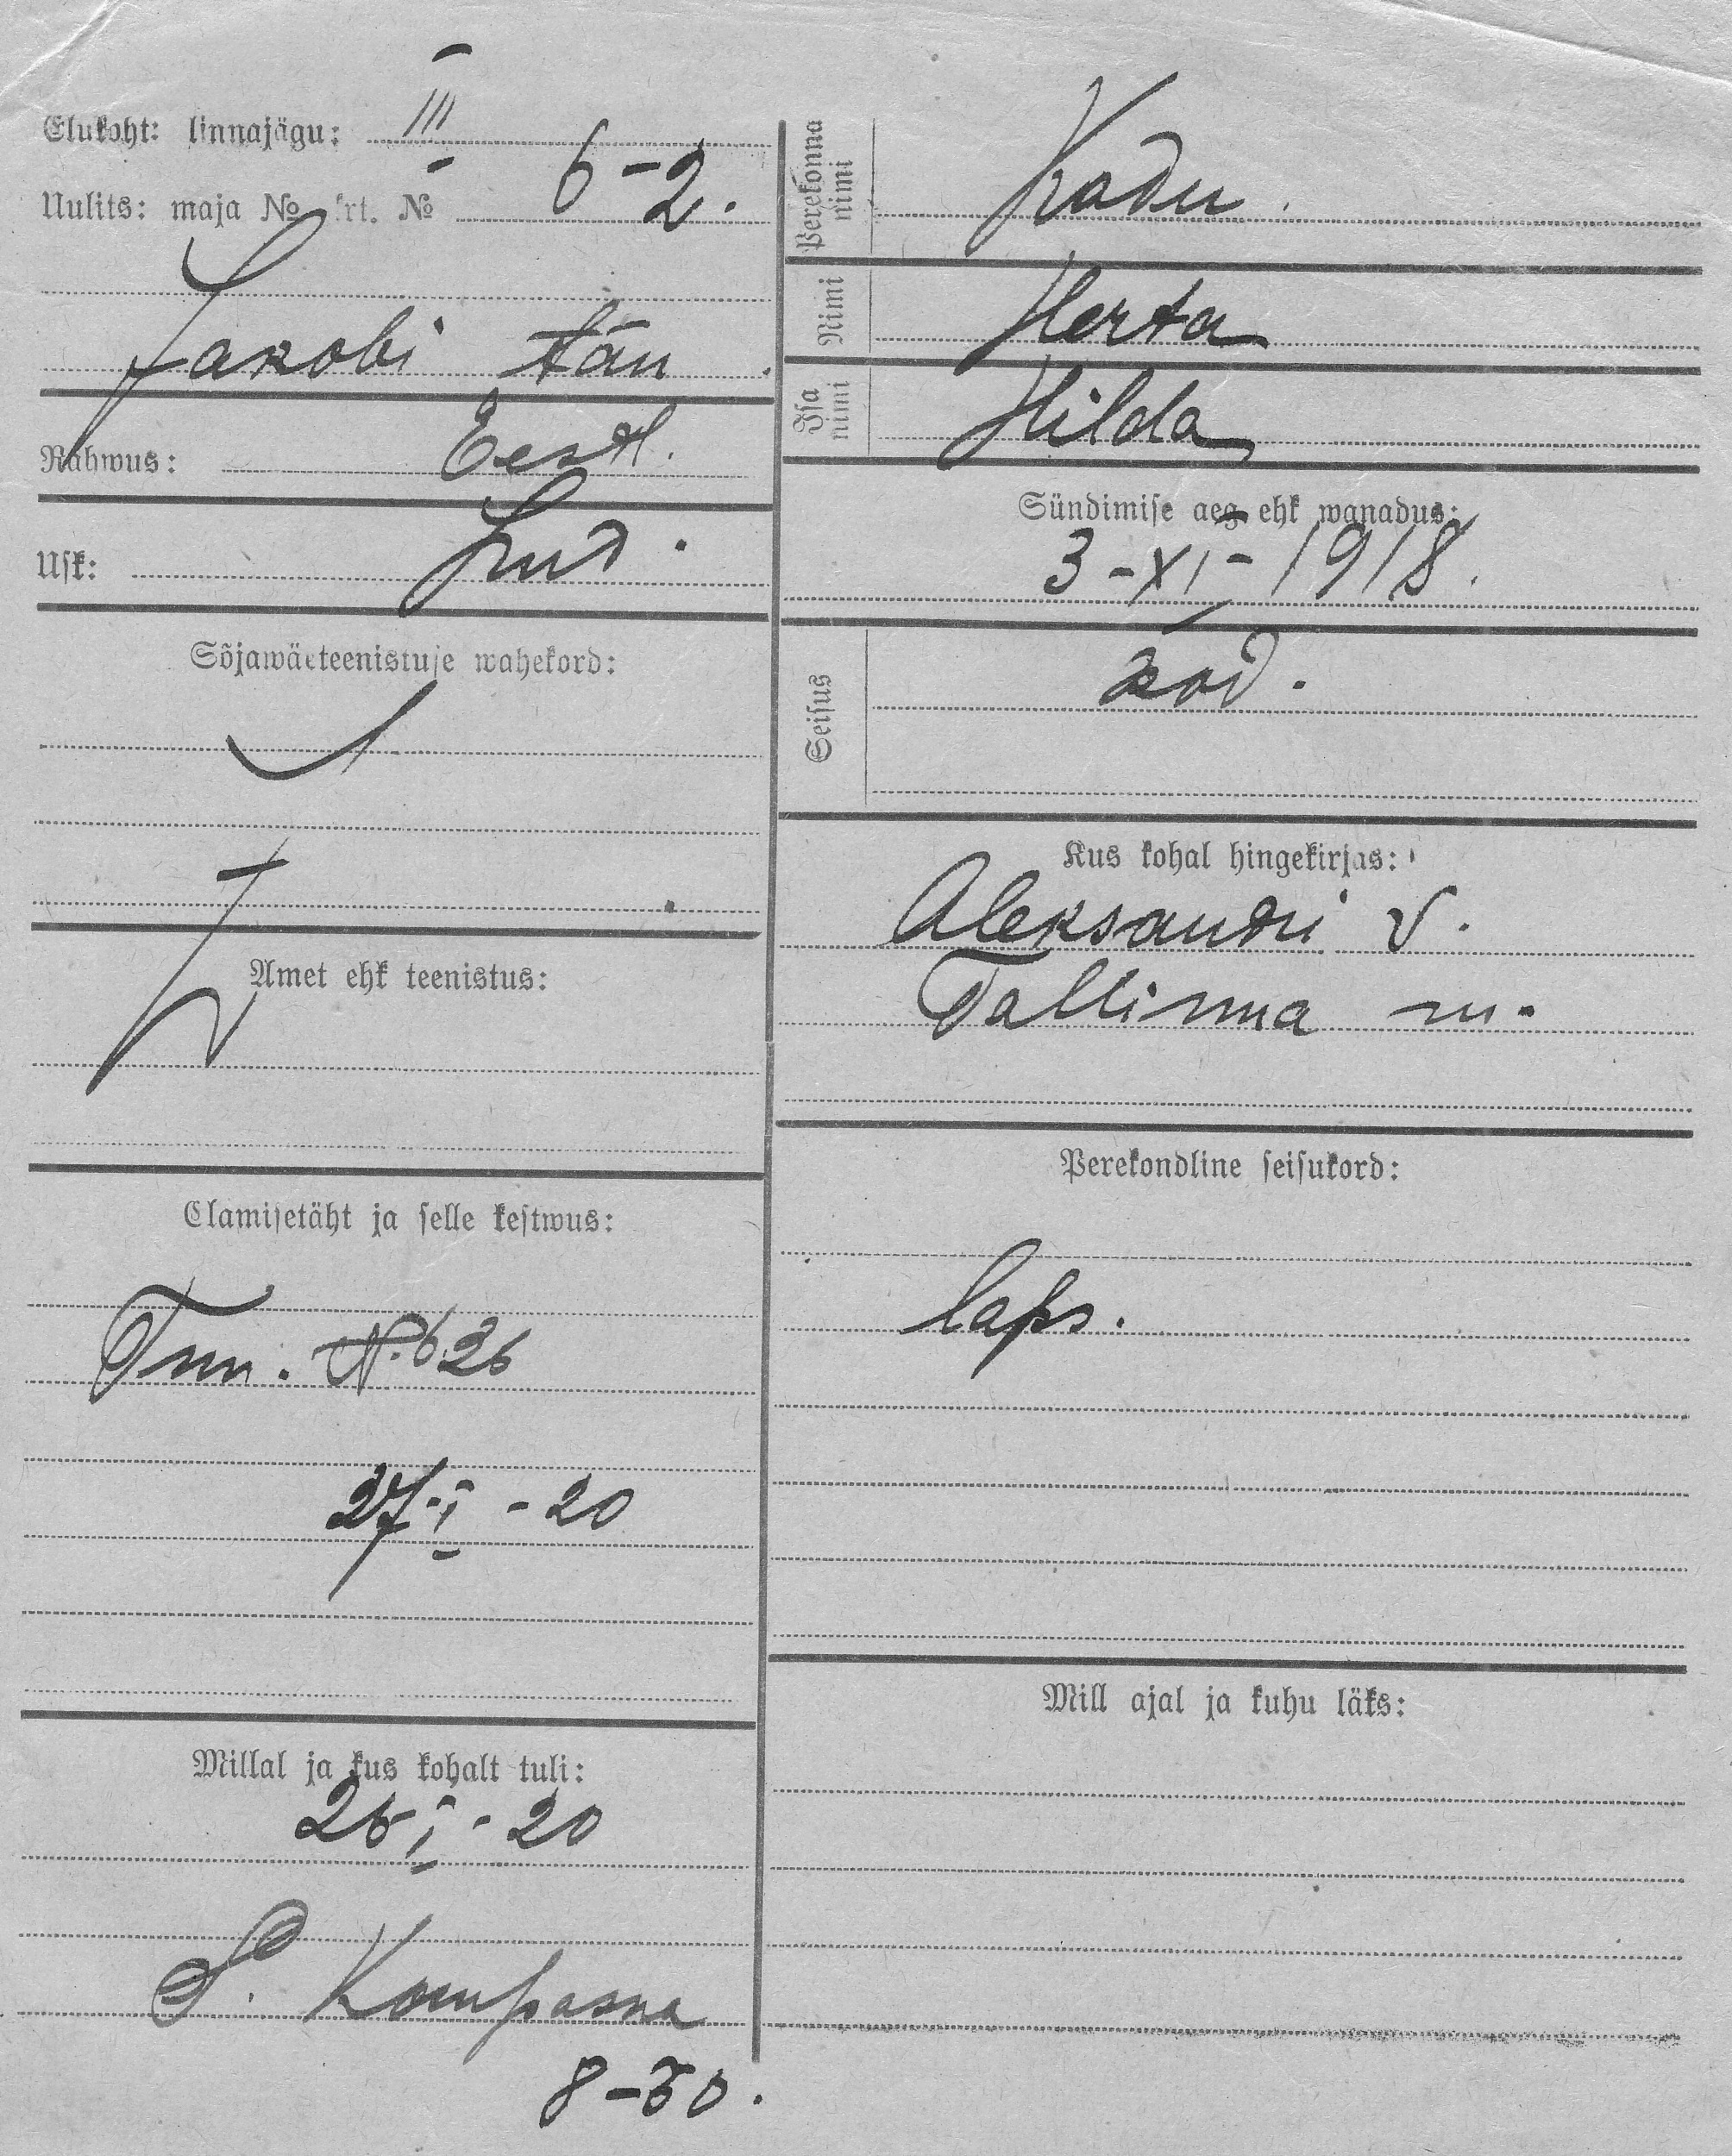 Elukoht: linnajägu: III
Uulits: maja № krt. № 6-2.
Jakobi tän.
Rahwus: Eestl.
Usk: Lut.
Sõjawäeteenistuse wahekord:
Amet ehk teenistus:
Elamisetäht ja selle kestwus:
Tnn. № 626
27-I-20
Millal ja kus kohalt tuli:
26-I-20
S. Kompasna
8-50.
Perekonna nimi Kadu.
Nimi Herta
Isa nimi Hilda
Sündimise aeg ehk wanadus:
3-XI-1918.
Seisus kod.
Kus kohal hingekirjas:
Aleksandri v.
Tallinna m.
Perekondline seisukord:
laps.
Mill ajal ja kuhu läks: